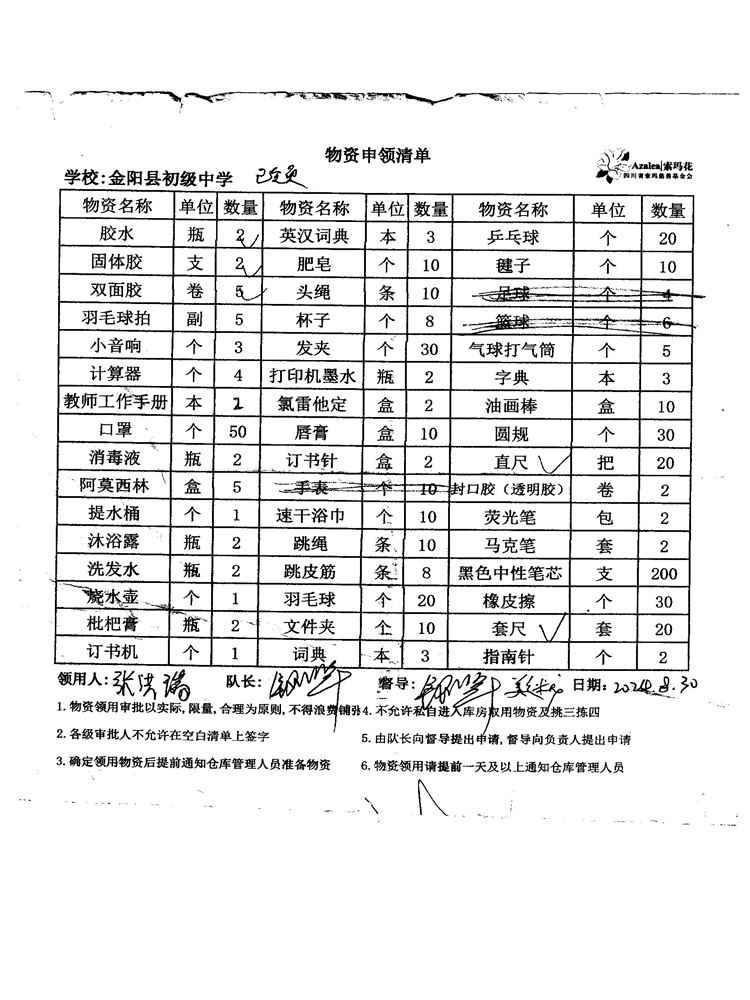 物资申领清单
Azalea|索玛花
四川省索玛慈善基金会
学校:金阳县初级中学
物资名称 单位 数量 物资名称 单位 数量 物资名称 单位 数量
胶水 瓶 2 英汉词典 本 3 乒乓球 个 20
固体胶 支 2 肥皂 个 10 毽子 个 10
双面胶 卷 5 头绳 条 10 足球 个 4
羽毛球拍 副 5 杯子 个 8 篮球 个 6
小音响 个 3 发夹 个 30 气球打气筒 个 5
计算器 个 4 打印机墨水 瓶 2 字典 本 3
教师工作手册 本 2 氯雷他定 盒 2 油画棒 盒 10
口罩 个 50 唇膏 盒 10 圆规 个 30
消毒液 瓶 2 订书针 盒 2 直尺 把 20
阿莫西林 盒 5 手表 个 10 封口胶(透明胶) 卷 2
提水桶 个 1 速干浴巾 个 10 荧光笔 包 2
沐浴露 瓶 2 跳绳 条 10 马克笔 套 2
洗发水 瓶 2 跳皮筋 条 8 黑色中性笔芯 支 200
烧水壶 个 1 羽毛球 个 20 橡皮擦 个 30
枇杷膏 瓶 2 文件夹 个 10 套尺 套 20
订书机 个 1 词典 本 3 指南针 个 2
领用人: 队长: 督导: 日期: 2024.8.30
1.物资领用审批以实际,限量,合理为原则,不得浪费铺张 4.不允许私自进入库房取用物资及挑三拣四
2.各级审批人不允许在空白清单上签字 5.由队长向督导提出申请,督导向负责人提出申请
3.确定领用物资后提前通知仓库管理人员准备物资 6.物资领用请提前一天及以上通知仓库管理人员